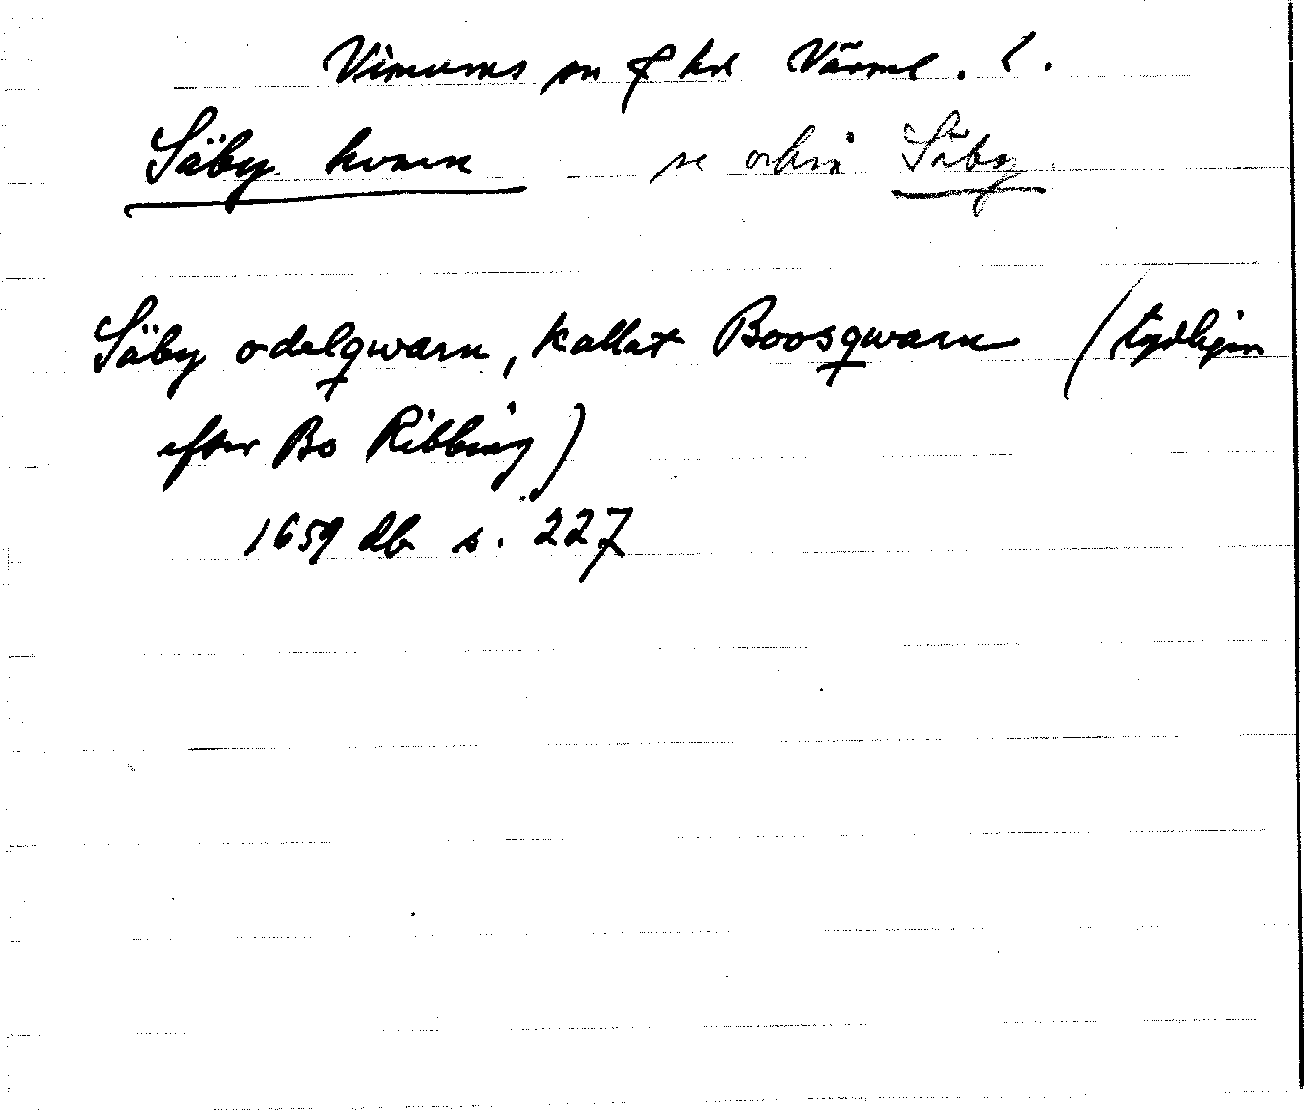 Visnums sn o hd Värml. l.
Säby kvarn se också Säby.
Säby odelqwarn, kallat Boosqwarn (tydligen
efter Bo Ribbing)
1659 db s. 227